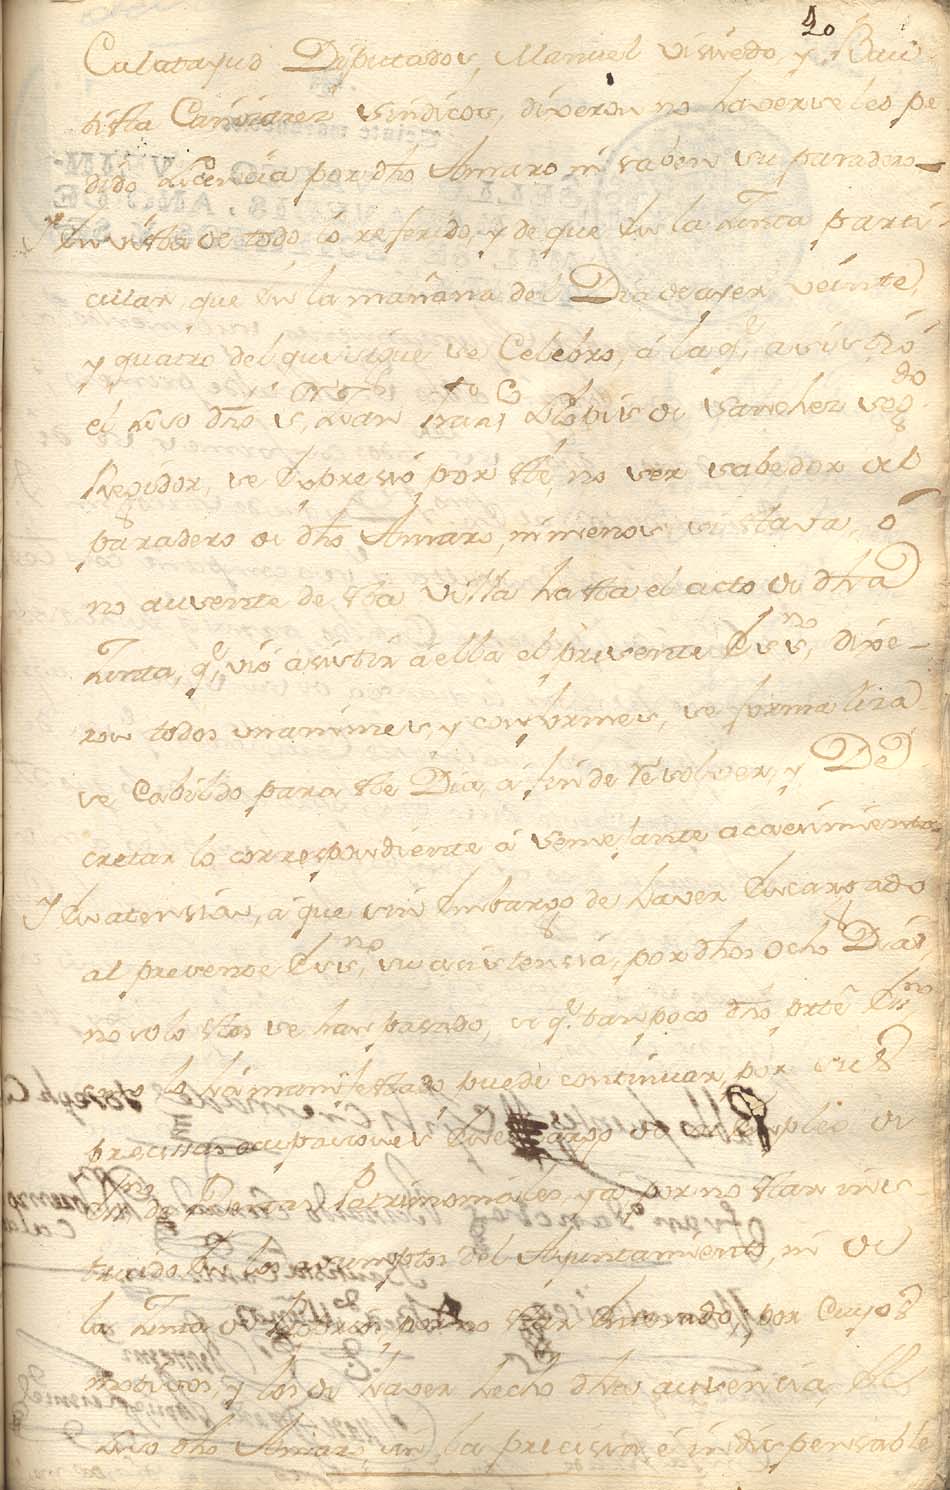 20
Calatayud Diputados, Manuel Visiedo, y Bau-
tista Cañizarez Sindicos, dixeron no haverseles pe
dido Licencia por dho Amaro ni saben su paradero
Y en vista de todo lo referido, y de que en la Junta parti-
cular, que en la mañana del Dia de ayer veinte,
y quatro del que sigue se Celebro, á la q.e asistió
el dho Sr Juan Llobis de Sanchez seg.do
Regidor, se expresó por este, no ser sabedor del
paradero de dho Amaro, ni menos si estava, ó
no ausente de esta Villa hasta el acto de dha
Junta, q.e vió asistir á ella el presente Ess.no, dixe-
ron todos unanimes, y conformes, se formaliza
se Cabildo para este Dia, á fin de resolver, y De
cretar lo correspondiente á semejante acaecimiento
Y en atension, á que sin embargo de haver encargado
al presente Ess.no, su asistensia, por dhos ocho Dias,
no solo estos se han pasado, si q.e tampoco dho prte Ess.no
lo há manifestado puede continuar, por sus
precissas ocupaciones en el cargo de su empleo de
Ess.no de Rentas Patrimoniales, ya por no estar ins
truido en los assumptos del Ayuntamiento, ni de
la Junta de Propios, por no estar enterado, por Cuyos
motivos, y los de haver hecho dha ausencia, el
dho Amaro, sin la precissa é indispensable